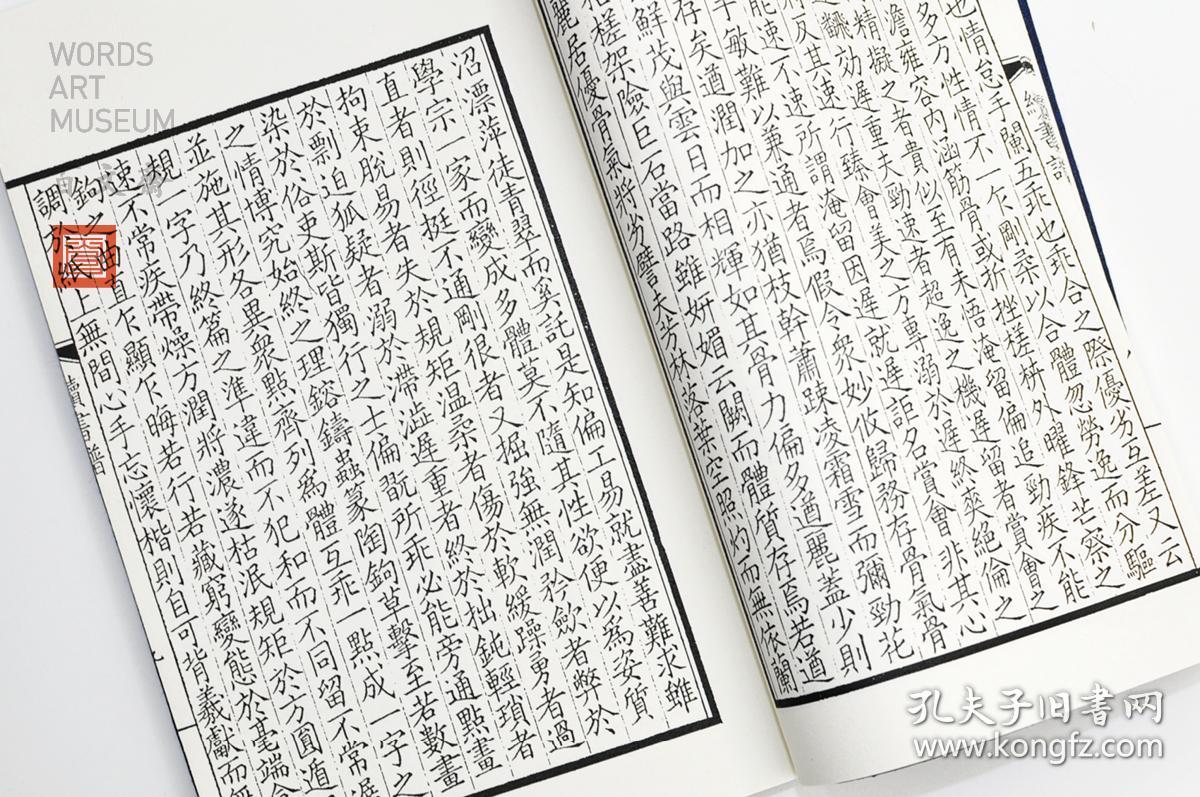 也情怠手闌五乖也乖合之際優劣互差又云
多方性情不一乍剛柔以合體忽勞逸而分驅
澹雍容内涵筋骨或折挫槎枿外曜鋒芒察之
精擬之者貴似至有未悟淹留偏追勁疾不能
飜効遲重夫勁速者超逸之機遲留者賞會之
反其速行臻會美之方專溺於遲終爽絕倫之
能速不速所謂淹留因遲就遲詎名賞會非其心
手敏難以兼通者焉假令衆妙攸歸務存骨氣骨
存矣遒潤加之亦猶枝幹蕭踈凌霜雪而彌勁花
鮮茂與雲日而相輝如其骨力偏多遒麗蓋少則
枯槎架險巨石當路雖妍媚云闕而體質存焉若遒
麗居優骨氣將劣譬夫芳林落蘂空昭灼而無依蘭
沼漂萍徒青翠而奚託是知偏工易就盡善難求雖
學宗一家而變成多體莫不隨其性欲便以為姿質
直者則徑挺不遒剛很者又掘強無潤矜歛者弊於
拘束脫易者失於規矩温柔者傷於軟緩躁勇者過
於剽迫狐疑者溺於滯澁遲重者終於拙鈍輕瑣者
染於俗吏斯皆獨行之士偏翫所乖必能旁通點畫
之情博究始終之理鎔鑄蟲篆陶鈞草擊至若數畫
並施其形各異衆點齊列為體互乖一點成一字之
規一字乃終篇之準違而不犯和而不同留不常遲
速不常疾帶燥方潤將濃遂枯泯規矩於方圓遁
鉤之曲直乍顯乍晦若行若藏窮變態於毫端合
調於紙上無間心手忘懷楷則自可背羲獻而無
續書譜
續書譜
WORDS
ART
MUSEUM
孔夫子旧书网
www.kongfz.com